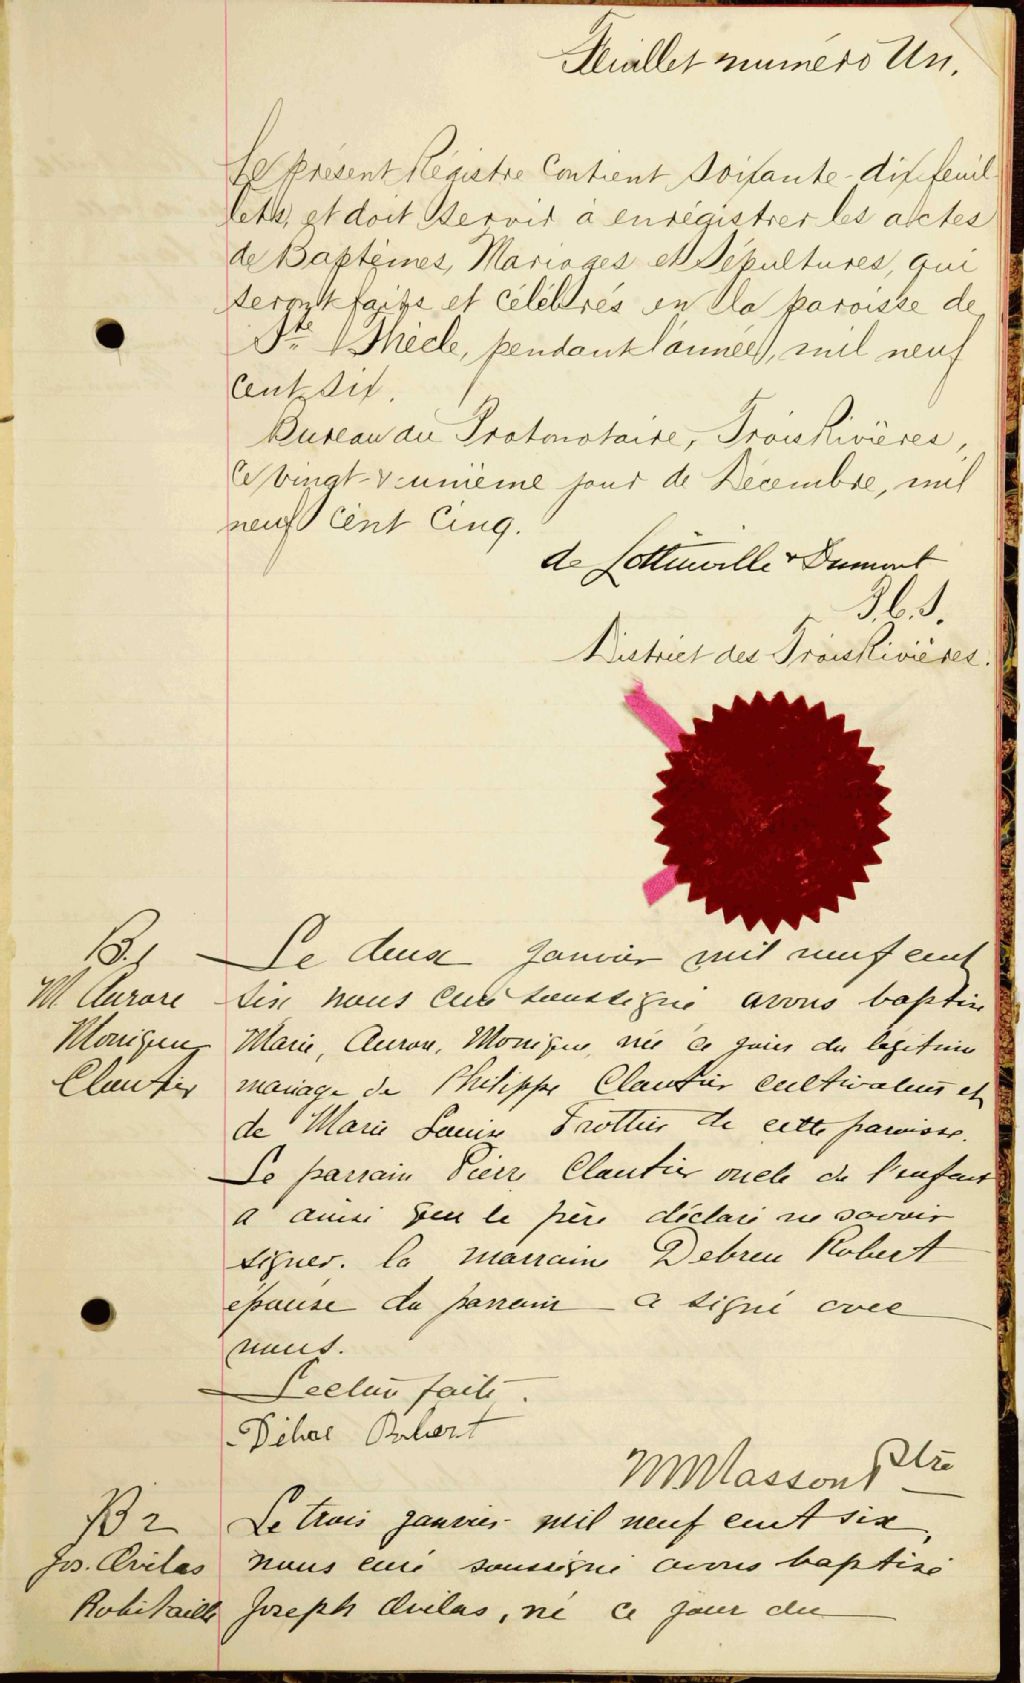 Feuillet numéro Un.
Le présent Régistre contient soixante-dix feuil-
lets, et doit servir à enrégistrer les actes
de Baptêmes, Mariages et Sépultures, qui
seront faits et célébrés en la paroisse de
Ste Thècle, pendant l'année, mil neuf
cent six.
Bureau du Protonotaire, Trois Rivières,
ce vingt-&-unième jour de Décembre, mil
neuf cent cinq.
de Lottinville & Dumont
P.C.S.
District des Trois Rivières.
B.1
M Aurore
Monique
Cloutier
Le deux janvier mil neuf cent
six nous curé soussigné avons baptisé
Marie, Aurore, Monique, née ce jour du légitime
mariage de Philippe Cloutier cultivateur et
de Marie Louise Trottier de cette paroisse.
Le parrain Pierre Cloutier oncle de l'enfant
a ainsi que le père déclaré ne savoir
signer. la marraine Robert
épouse du parrain a signé avec
nous.
Lecture faite.
Robert
M Masson Ptre
B 2
Jos. Ovilas
Robitaille
Le trois janvier mil neuf cent six,
nous curé soussigné avons baptisé
Joseph Ovilas, né ce jour du